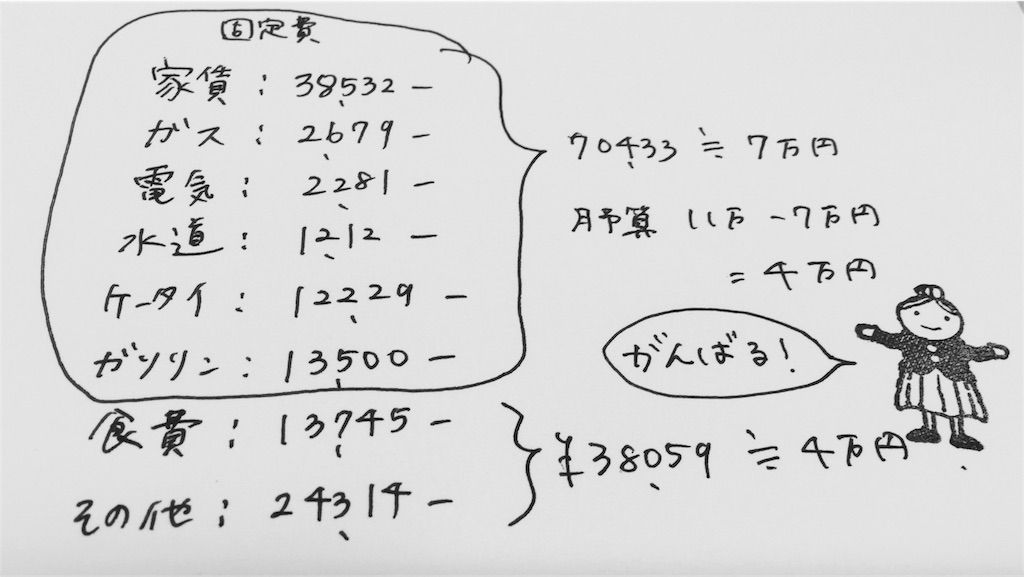 固定費
家賃：38,532－
ガス：2,679－
電気：2,281－
水道：1,212－
ケータイ：12,229－
ガソリン：13,500－
70,433≒7万円
月予算 11万－7万円
＝4万円
がんばる！
食費：13,745－
その他：24,314－
¥38,059≒4万円